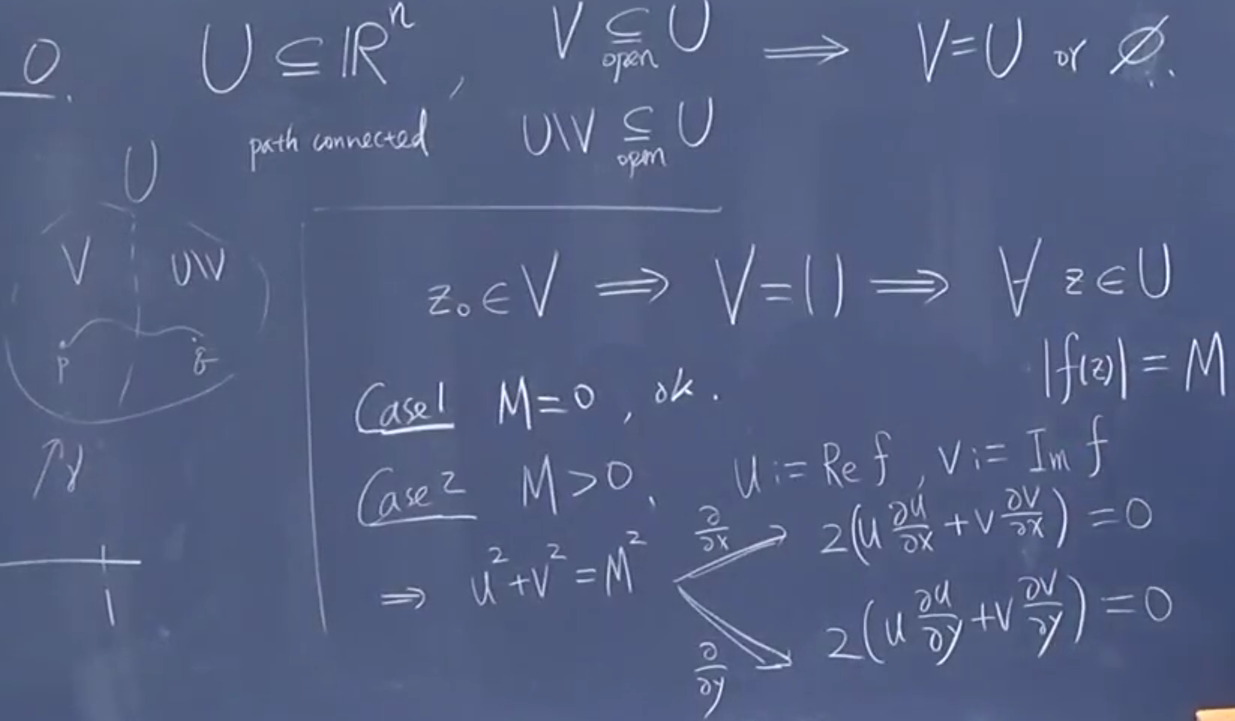 0. U ⊆ ℝⁿ, V ⊆ U ⟹ V=U or ∅.
open
path connected U\V ⊆ U
open
U
V U\V
p q
↑γ
1
z₀ ∈ V ⟹ V=U ⟹ ∀ z ∈ U
|f(z)| = M
Case1 M=0, ok.
Case2 M>0. u := Re f, v := Im f
⟹ u²+v²=M²
∂/∂x 2(u ∂u/∂x + v ∂v/∂x) = 0
∂/∂y 2(u ∂u/∂y + v ∂v/∂y) = 0